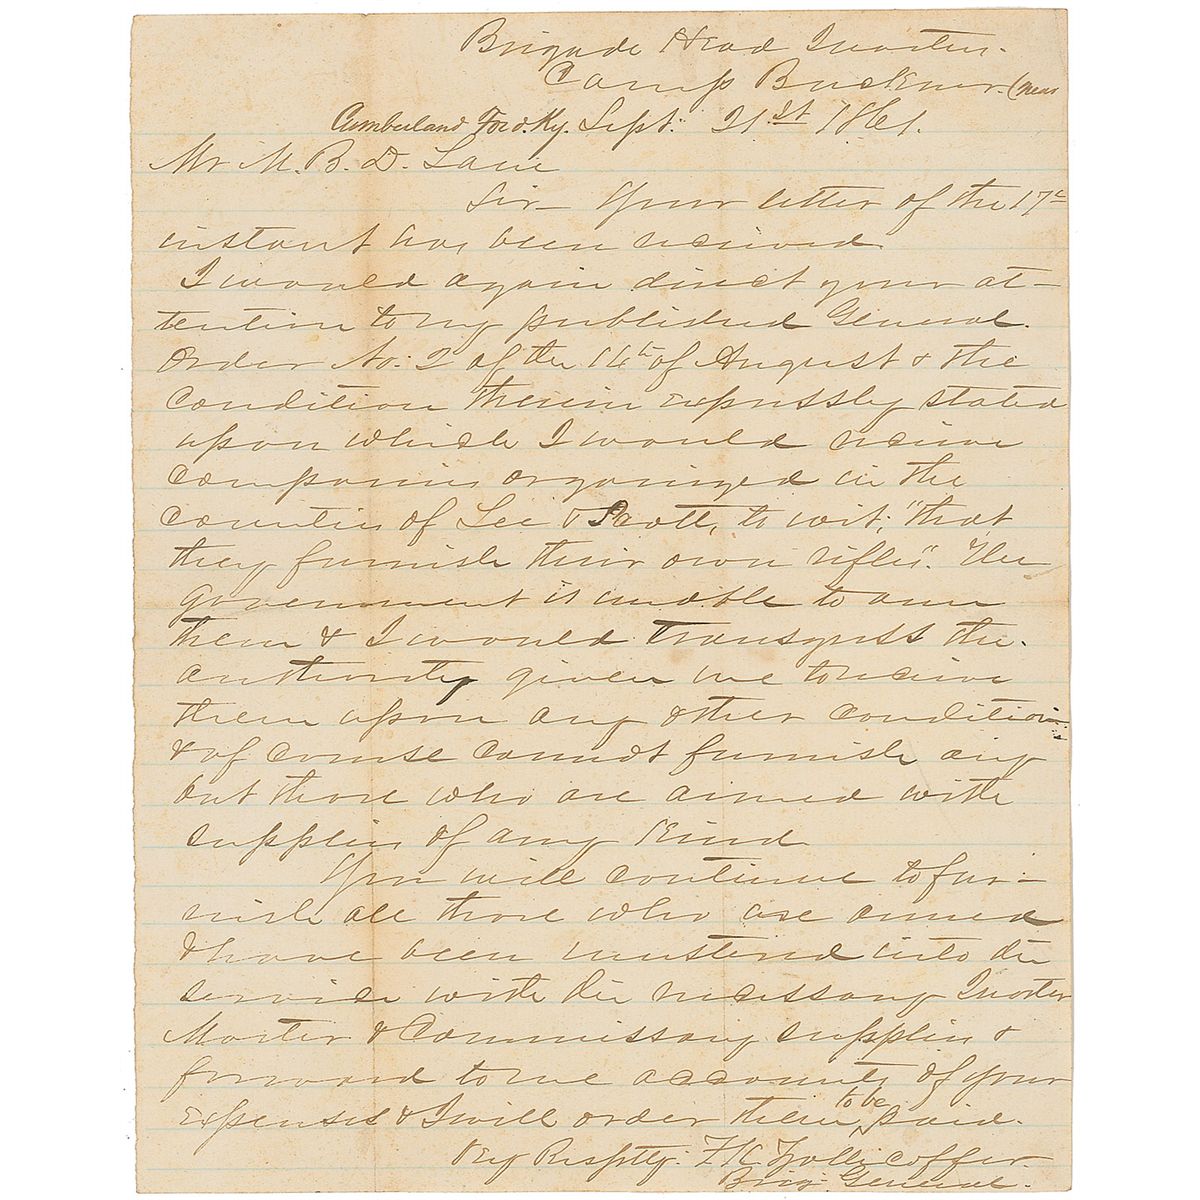 Brigade Head Quarters.
Camp Buckner. (near
Cumberland Ford. Ky. Sept. 21st 1861.
Mr M. B. D. Lane
Sir— Your letter of the 17th
instant has been received
I would again direct your at-
tention to my published General.
Order No. 2 of the 14th of August & the
condition therein expressly stated
upon which I would receive
companies organized in the
counties of Lee & Scott, to wit; "that
they furnish their own rifles". The
government is unable to arm
them & I would transgress the.
authority given me to receive
them upon any other condition
& of course cannot furnish any
but those who are armed with
supplies of any kind
You will continue to fur-
nish all those who are armed
& have been mustered into the
service with the necessary Quarter
Master & Commissary supplies &
forward to me accounts of your
expenses & I will order them to be paid.
Very Resptly. F. K. Zollicoffer.
Brig. General.